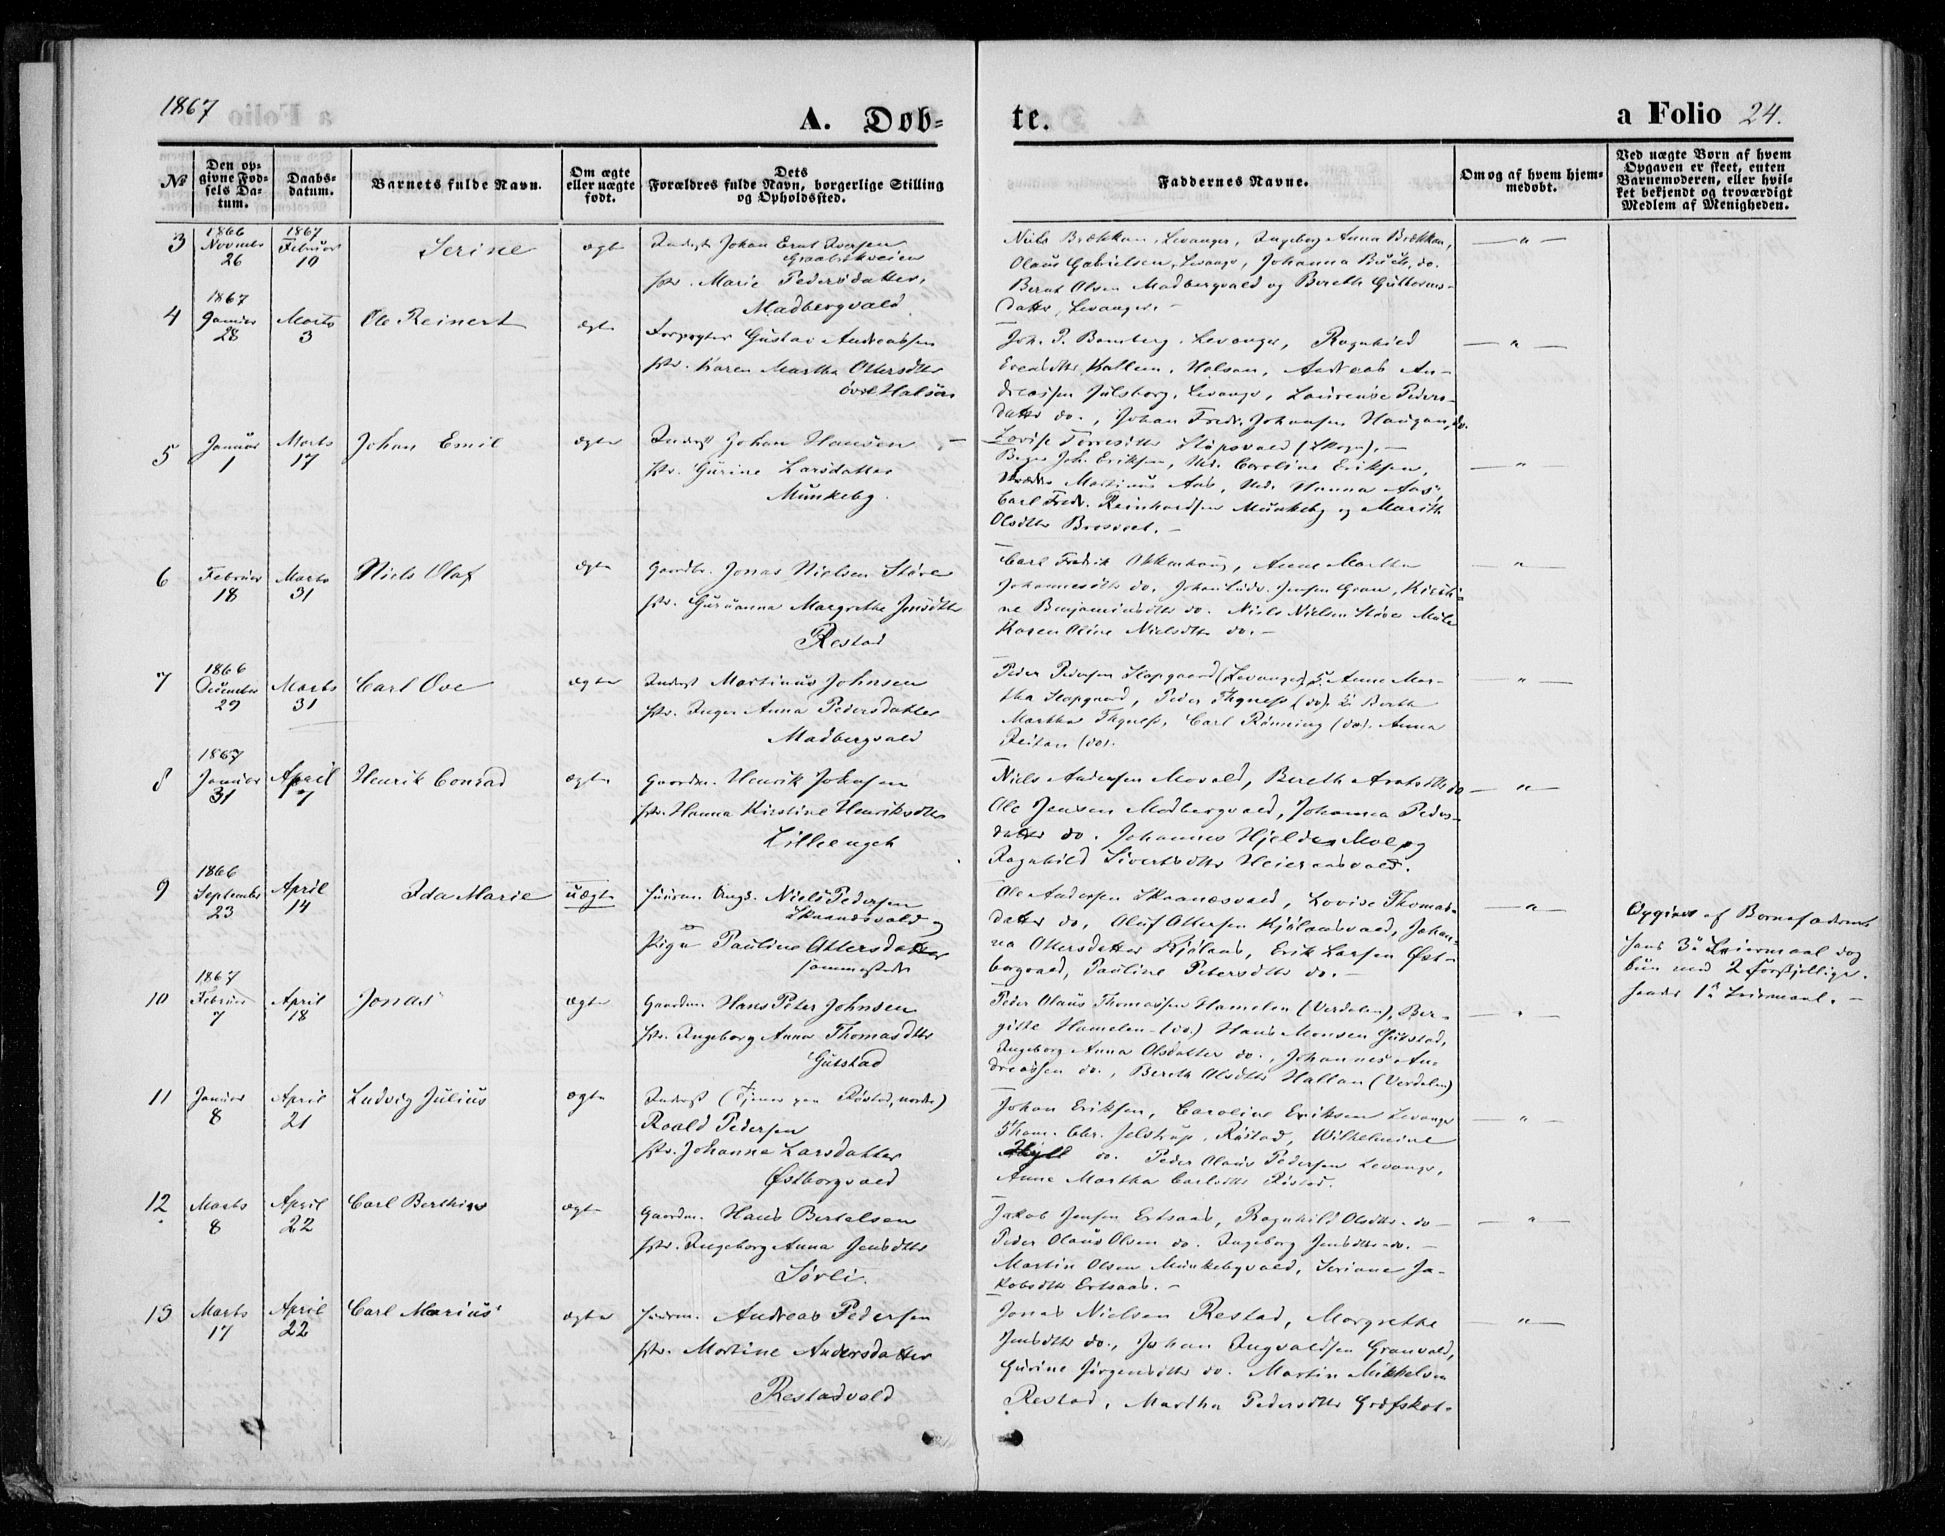 1867
A. Døb-
te.
a Folio 24.
No
Den op-
givne Fød-
sels Da-
tum.
Daabs-
datum.
Barnets fulde Navn.
Om ægte
eller uægte
født.
Dets
Forældres fulde Navn, borgerlige Stilling
og Opholdssted.
Faddernes Navne.
Om og af hvem hjem-
medøbt.
Ved uægte Børn af hvem
Opgaven er skeet, enten
Barnemoderen, eller hvil-
ket bekjendt og troværdigt
Medlem af Menigheden.
3
1866
Novmbr
26
1867
Februar
19
Serine
ægte
Inderst Johan Ernt Iversen
Htr. Marie Pedersdatter,
Madbergvald
Niels Brækkan, Levanger, Ingeborg Anna Brækkan,
Olaus Gabrielsen, Levanger, Johanna Buch, do.
Bernt Olsen Madbergvald og Bereth Guttorms-
datter, Levanger. -
4
1867
Januar
28
Marts
3
Ole Reinert
ægte
Forpagter Gustav Andreassen
Htr. Karen Martha Ottersdtr
øvre Halsan
Levanger, Ragnhild
Halsan, Andreas An-
dreassen Julsborg, Levanger, Laurense Peders-
datter do., Johan Fredr. Johansen Haugan, do.
Lovise Torresdtr (Skogn). -
5
Januar
1
Marts
17
Johan Emil
ægte
Inderst Johan Hansen
Htr. Gurine Larsdatter
Munkeby.
Joh. Eriksen, Md. Caroline Eriksen,
Martinus Aas, Md. Hanna Aas,
Carl Fredr. Reinhardsen Munkeby og Marith
Olsdtr -
6
Februar
18
Marts
31
Niels Olaf
ægte
Gaardbr. Jonas Nielsen Støre
Htr. Guruanna Margrethe Jensdtr
Restad
Carl Fredrik Okkenhaug, Anne Martha
Johannesdtr do. Johan Ludv. Jensen Gran, Kirsti-
ne Benjaminsdtr do. Niels Nielsen Støre Mule
Karen Oline Nielsdtr do. -
7
1866
December
29
Marts
31
Carl Ove
ægte
Inderst Martinus Johnsen
Htr. Inger Anna Pedersdatter
Madbergvald
Peder Pedersen Stopgaard (Levanger) Anne Mar-
tha Stopgaard, Peder Thyness (do). Bereth
Martha Thyness, Carl Rønning (do). Anna
Reitan (do).
8
1867
Januar
31
April
7
Henrik Conrad
ægte
Gaardm. Henrik Johnsen
Htr. Hanna Kirstine Henriksdtr
Lilleenget
Niels Andersen Movald, Bereth do
Ole Jensen Madbergvald, Johanna Peders-
datter do. Johannes Hjelde Moe og
Ragnhild Sivertsdtr Heieraasvald.
9
1866
September
23
April
14
Ida Marie
uægte
Huusm. Ungk. Niels Pedersen
Skaanesvald
og
Pige Pauline Ottersdatter
sammesteds
Ole Andersen Skaanesvald, Lovise Thomas-
datter do, Oluf Ottersen Kjølaasvald, Johan-
na Ottersdatter Kjølaas, Erik Larsen Øst-
borgvald, Pauline Petersdtr do. -
Opgivet af Barnefaderen
hans 3die Leiermaal og
hun med 2 forskjellige.
1ste Leiermaal. -
10
1867
Februar
7
April
18
Jonas
ægte
Gaardm. Hans Peter Johnsen
Htr. Ingeborg Anna Thomasdtr
Gutstad
Peder Olaus Thomassen Hamelen (Verdalen), Ber-
gitte Hamelen (do.) Hans Monsen Gutstad,
Ingeborg Anna Olsdatter do., Johannes An-
dreassen do., Bereth Olsdtr Hallan (Verdalen)
11
Januar
8
April
21
Ludvig Julius
ægte
Inderst (Tjener paa Røstad, nordre)
Roald Pedersen
Htr. Johanna Larsdatter
Østborgvald
Johan Eriksen, Caroline Eriksen Levanger
Thom. Chr. Jelstrup, Røstad, Wilhelmine
do. Peder Olaus Pedersen Levanger,
Anne Martha Carlsdtr Røstad.
12
Marts
8
April
22
Carl Berthin
ægte
Gaardm. Hans Bertelsen
Htr. Ingeborg Anna Jensdtr
Sørli.
Jakob Jensen Ertsaas, Ragnhild Olsdtr. do -
Peder Olaus Olsen do. Ingeborg Jensdtr do. -
Martin Olsen Munkebyvald, Seriane Ja-
kobsdtr Ertsaas. -
13
Marts
17
April
22
Carl Marius
ægte
Huusm. Andreas Pedersen
Htr. Martine Andersdatter
Restadvald
Jonas Nielsen Restad, Margrethe
Jensdtr do., Johan Ingvaldsen Granvald,
Gurine Jørgensdtr do. Martin Mikkelsen
Restad, Martha Pedersdtr Grefskot.